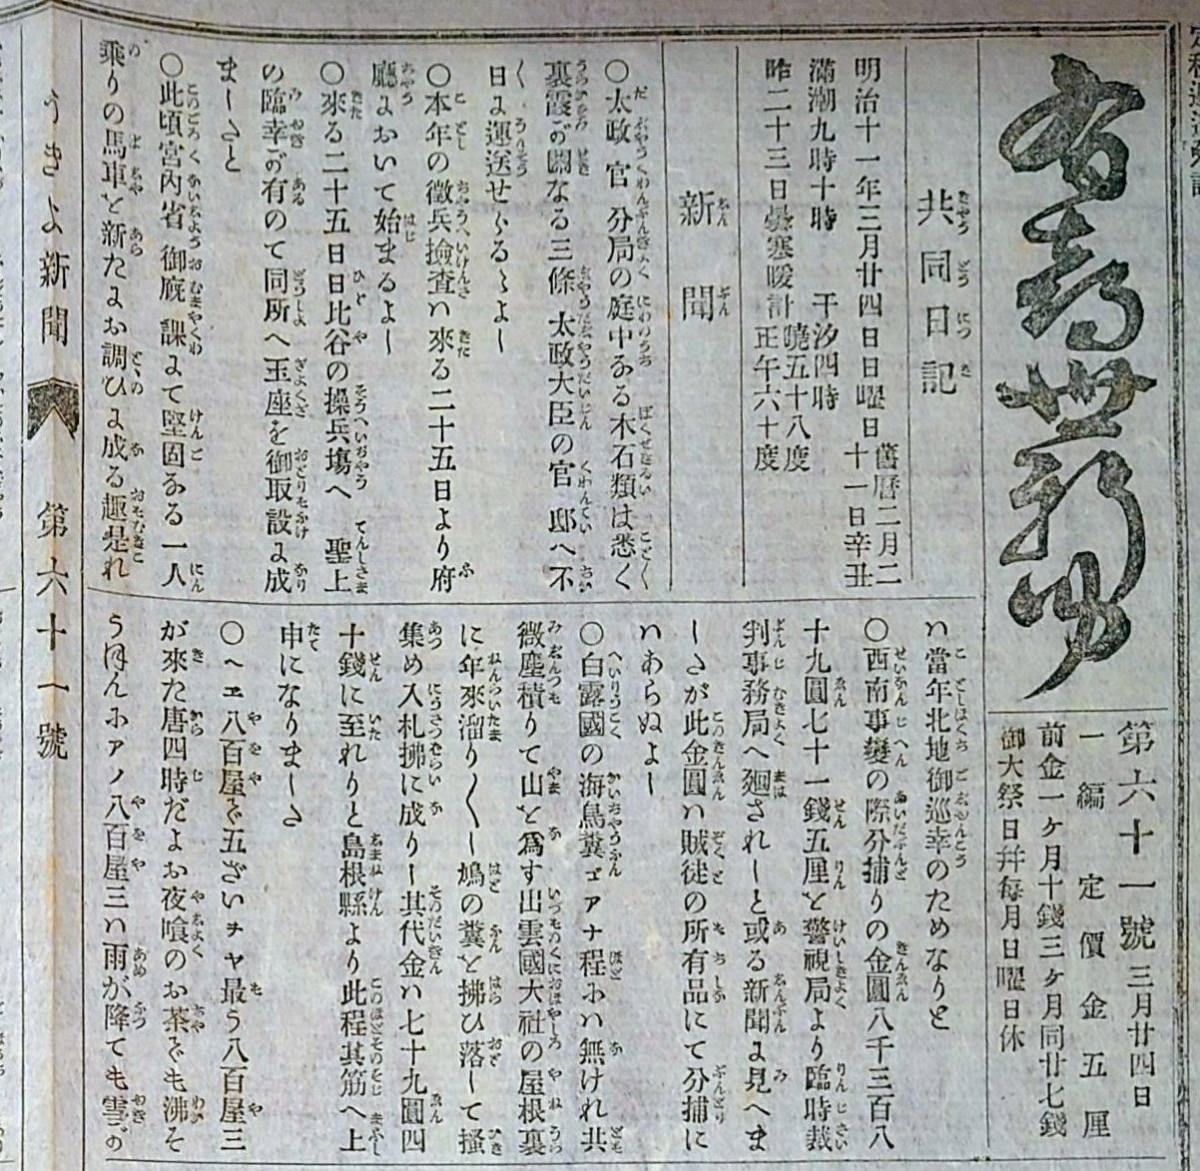 有喜世新聞
第六十一號 三月廿四日
一編定價金五厘
前金一ヶ月十錢三ヶ月同廿七錢
御大祭日幷每月日曜日休
共同日記
明治十一年三月廿四日日曜日 舊曆二月二十一日辛丑
滿潮九時十時 干汐四時
昨二十三日曇寒暖計 曉五十八度 正午六十度
新聞
〇太政官分局の庭中ある木石類は悉く
裏霞が關なる三條太政大臣の官邸へ不
日に運送せらるゝよし
〇本年の徵兵撿査ハ來る二十五日より府
廳において始まるよし
〇來る二十五日日比谷の操兵塲へ 聖上
の臨幸が有るので同所へ玉座を御取設に成
ましたと
〇此頃宮內省御廐課にて堅固ある一人
乘りの馬車と新たにお調ひに成る趣是れ
ハ當年北地御巡幸のためなりと
〇西南事變の際分捕りの金圓八千三百八
十九圓七十一錢五厘と警視局より臨時裁
判事務局へ廻されしと或る新聞に見へま
したが此金圓ハ賊徒の所有品にて分捕に
ハあらぬよし
〇白露國の海鳥糞ヂアナ程にハ無けれ共
微塵積りて山と爲す出雲國大社の屋根裏
に年來溜り〳〵し鳩の糞と拂ひ落して搔
集め入札拂に成りし其代金ハ七十九圓四
十錢に至れりと島根縣より此程其筋へ上
申になりました
〇ヘヱ八百屋で五ざいチヤ最う八百屋三
が來た唐四時だよお夜喰のお茶でも沸そ
うほんにアノ八百屋三ハ雨が降ても雪が
うきよ新聞 第六十一號